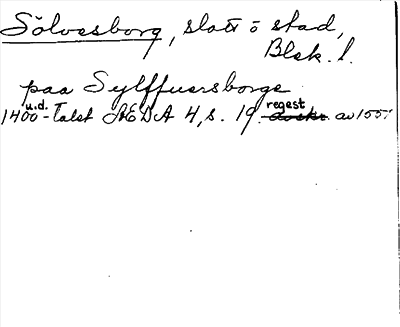 Sölvesborg, slott o stad,
Blek. l.
paa Sylffuersborge
u.d. regest
1400-talet ÆDA 4, s. 19. avskr. av 155